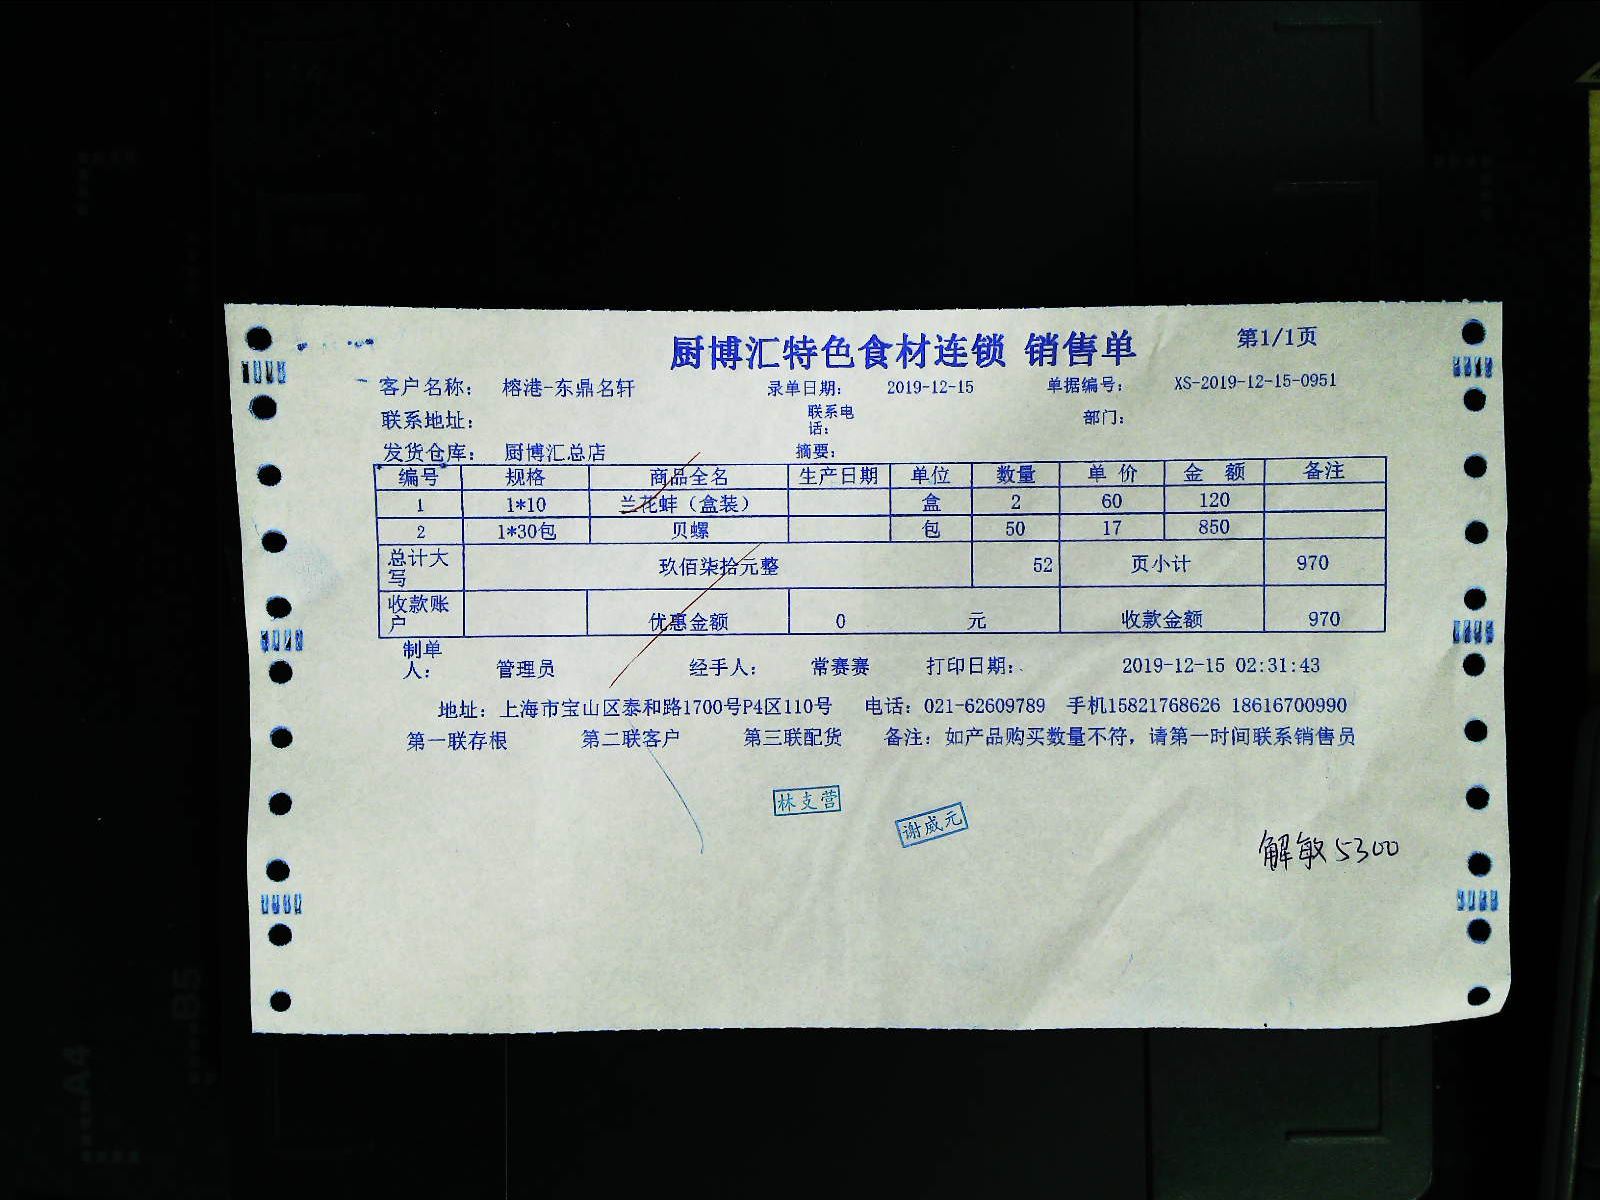 厨博汇特色食材连锁 销售单 第1/1页
客户名称： 榕港-东鼎名轩 录单日期： 2019-12-15 单据编号： XS-2019-12-15-0951
联系地址： 联系电话： 部门：
发货仓库： 厨博汇总店 摘要：
编号 规格 商品全名 生产日期 单位 数量 单 价 金 额 备注
1 1*10 兰花蚌（盒装） 盒 2 60 120
2 1*30包 贝螺 包 50 17 850
总计大写 玖佰柒拾元整 52 页小计 970
收款账户 优惠金额 0 元 收款金额 970
制单人： 管理员 经手人： 常赛赛 打印日期： 2019-12-15 02:31:43
地址：上海市宝山区泰和路1700号P4区110号 电话：021-62609789 手机15821768626 18616700990
第一联存根 第二联客户 第三联配货 备注：如产品购买数量不符，请第一时间联系销售员
林支营
谢威元
解敏5300
A4
B5